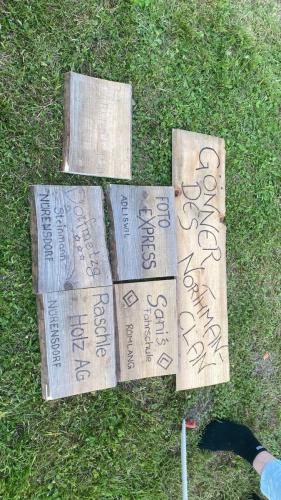 GÖNNER
DES
NORTHMANT
CLAN
FOTO
EXPRESS
ADLISWIL
Dorfmetzg
Steinmann
NÜRENSDORF
Sani's
Fahrschule
RÜMLANG
Raschle
Holz AG
NÜRENSDORF